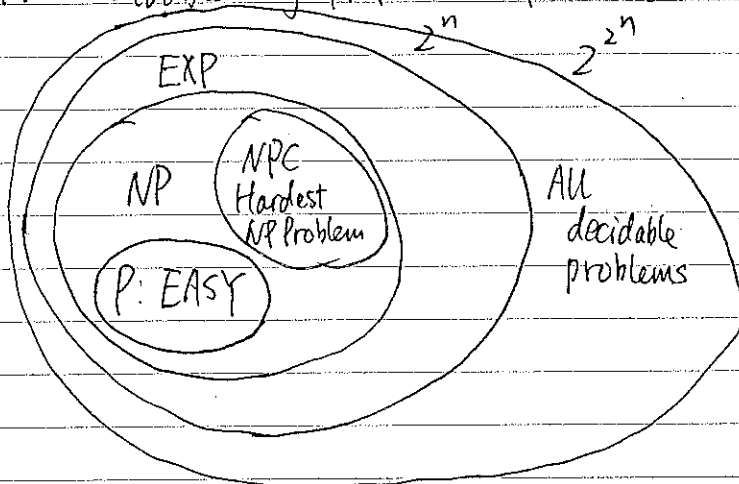 2^n
2^2^n
EXP
NP
NPC
Hardest
NP Problem
P: EASY
All
decidable
problems